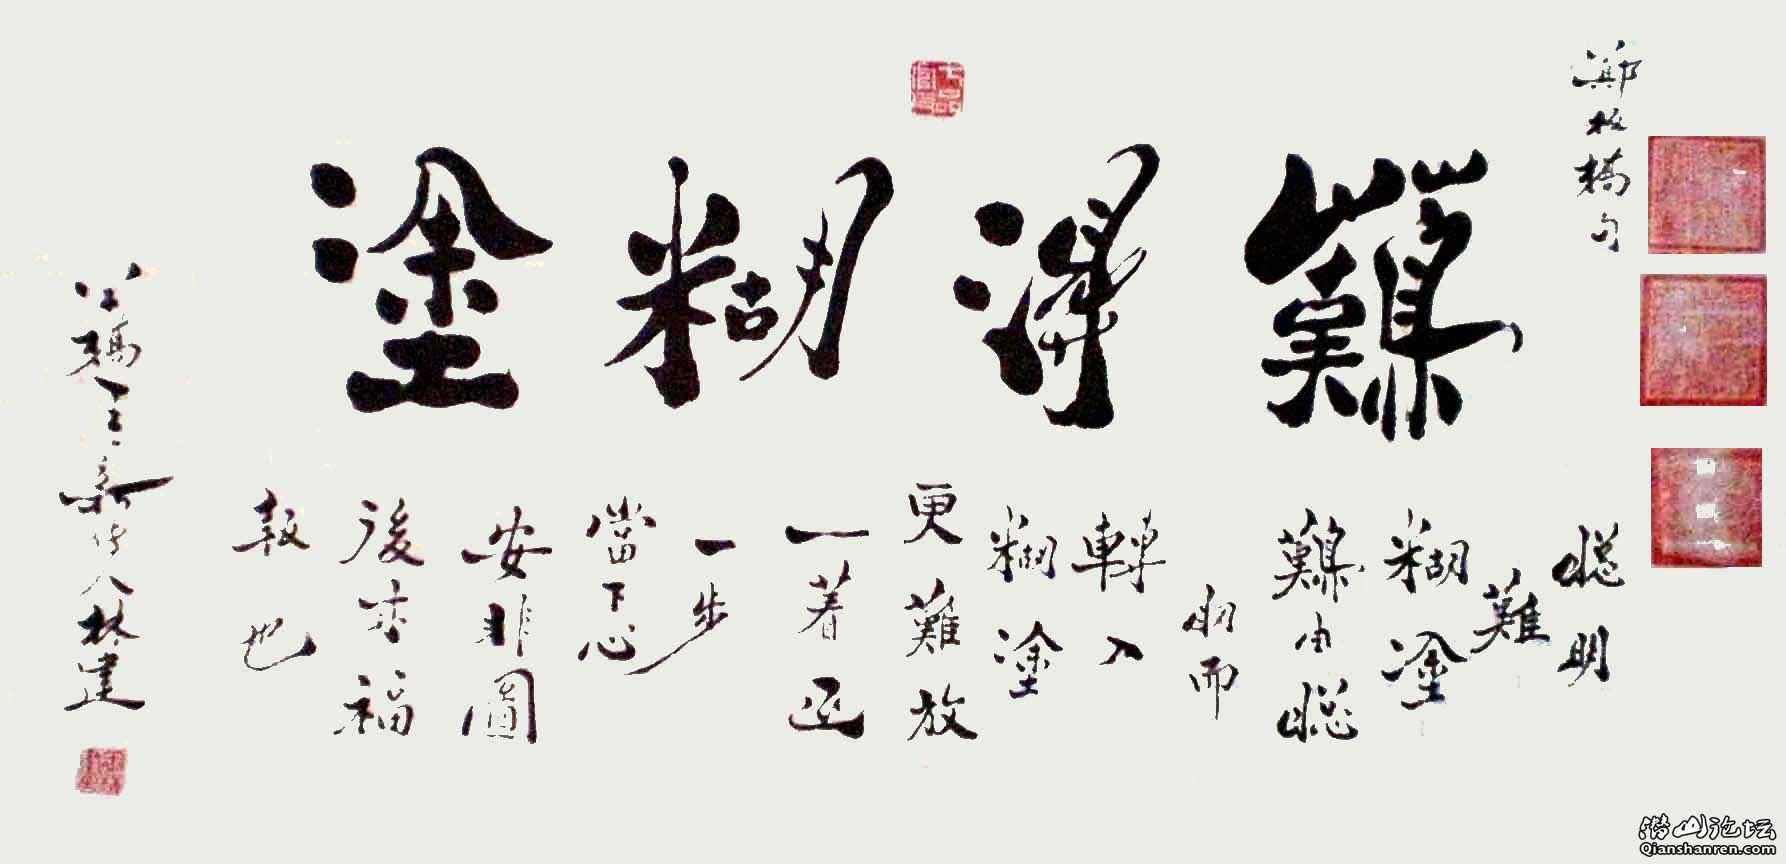 鄭板橋句
難得糊塗
聰明
難
糊塗
難由聰
明而
轉入
糊塗
更難放
一着退
一步
當下心
安非圖
後來福
報也
林建
潜山论坛
Qianshanren.com